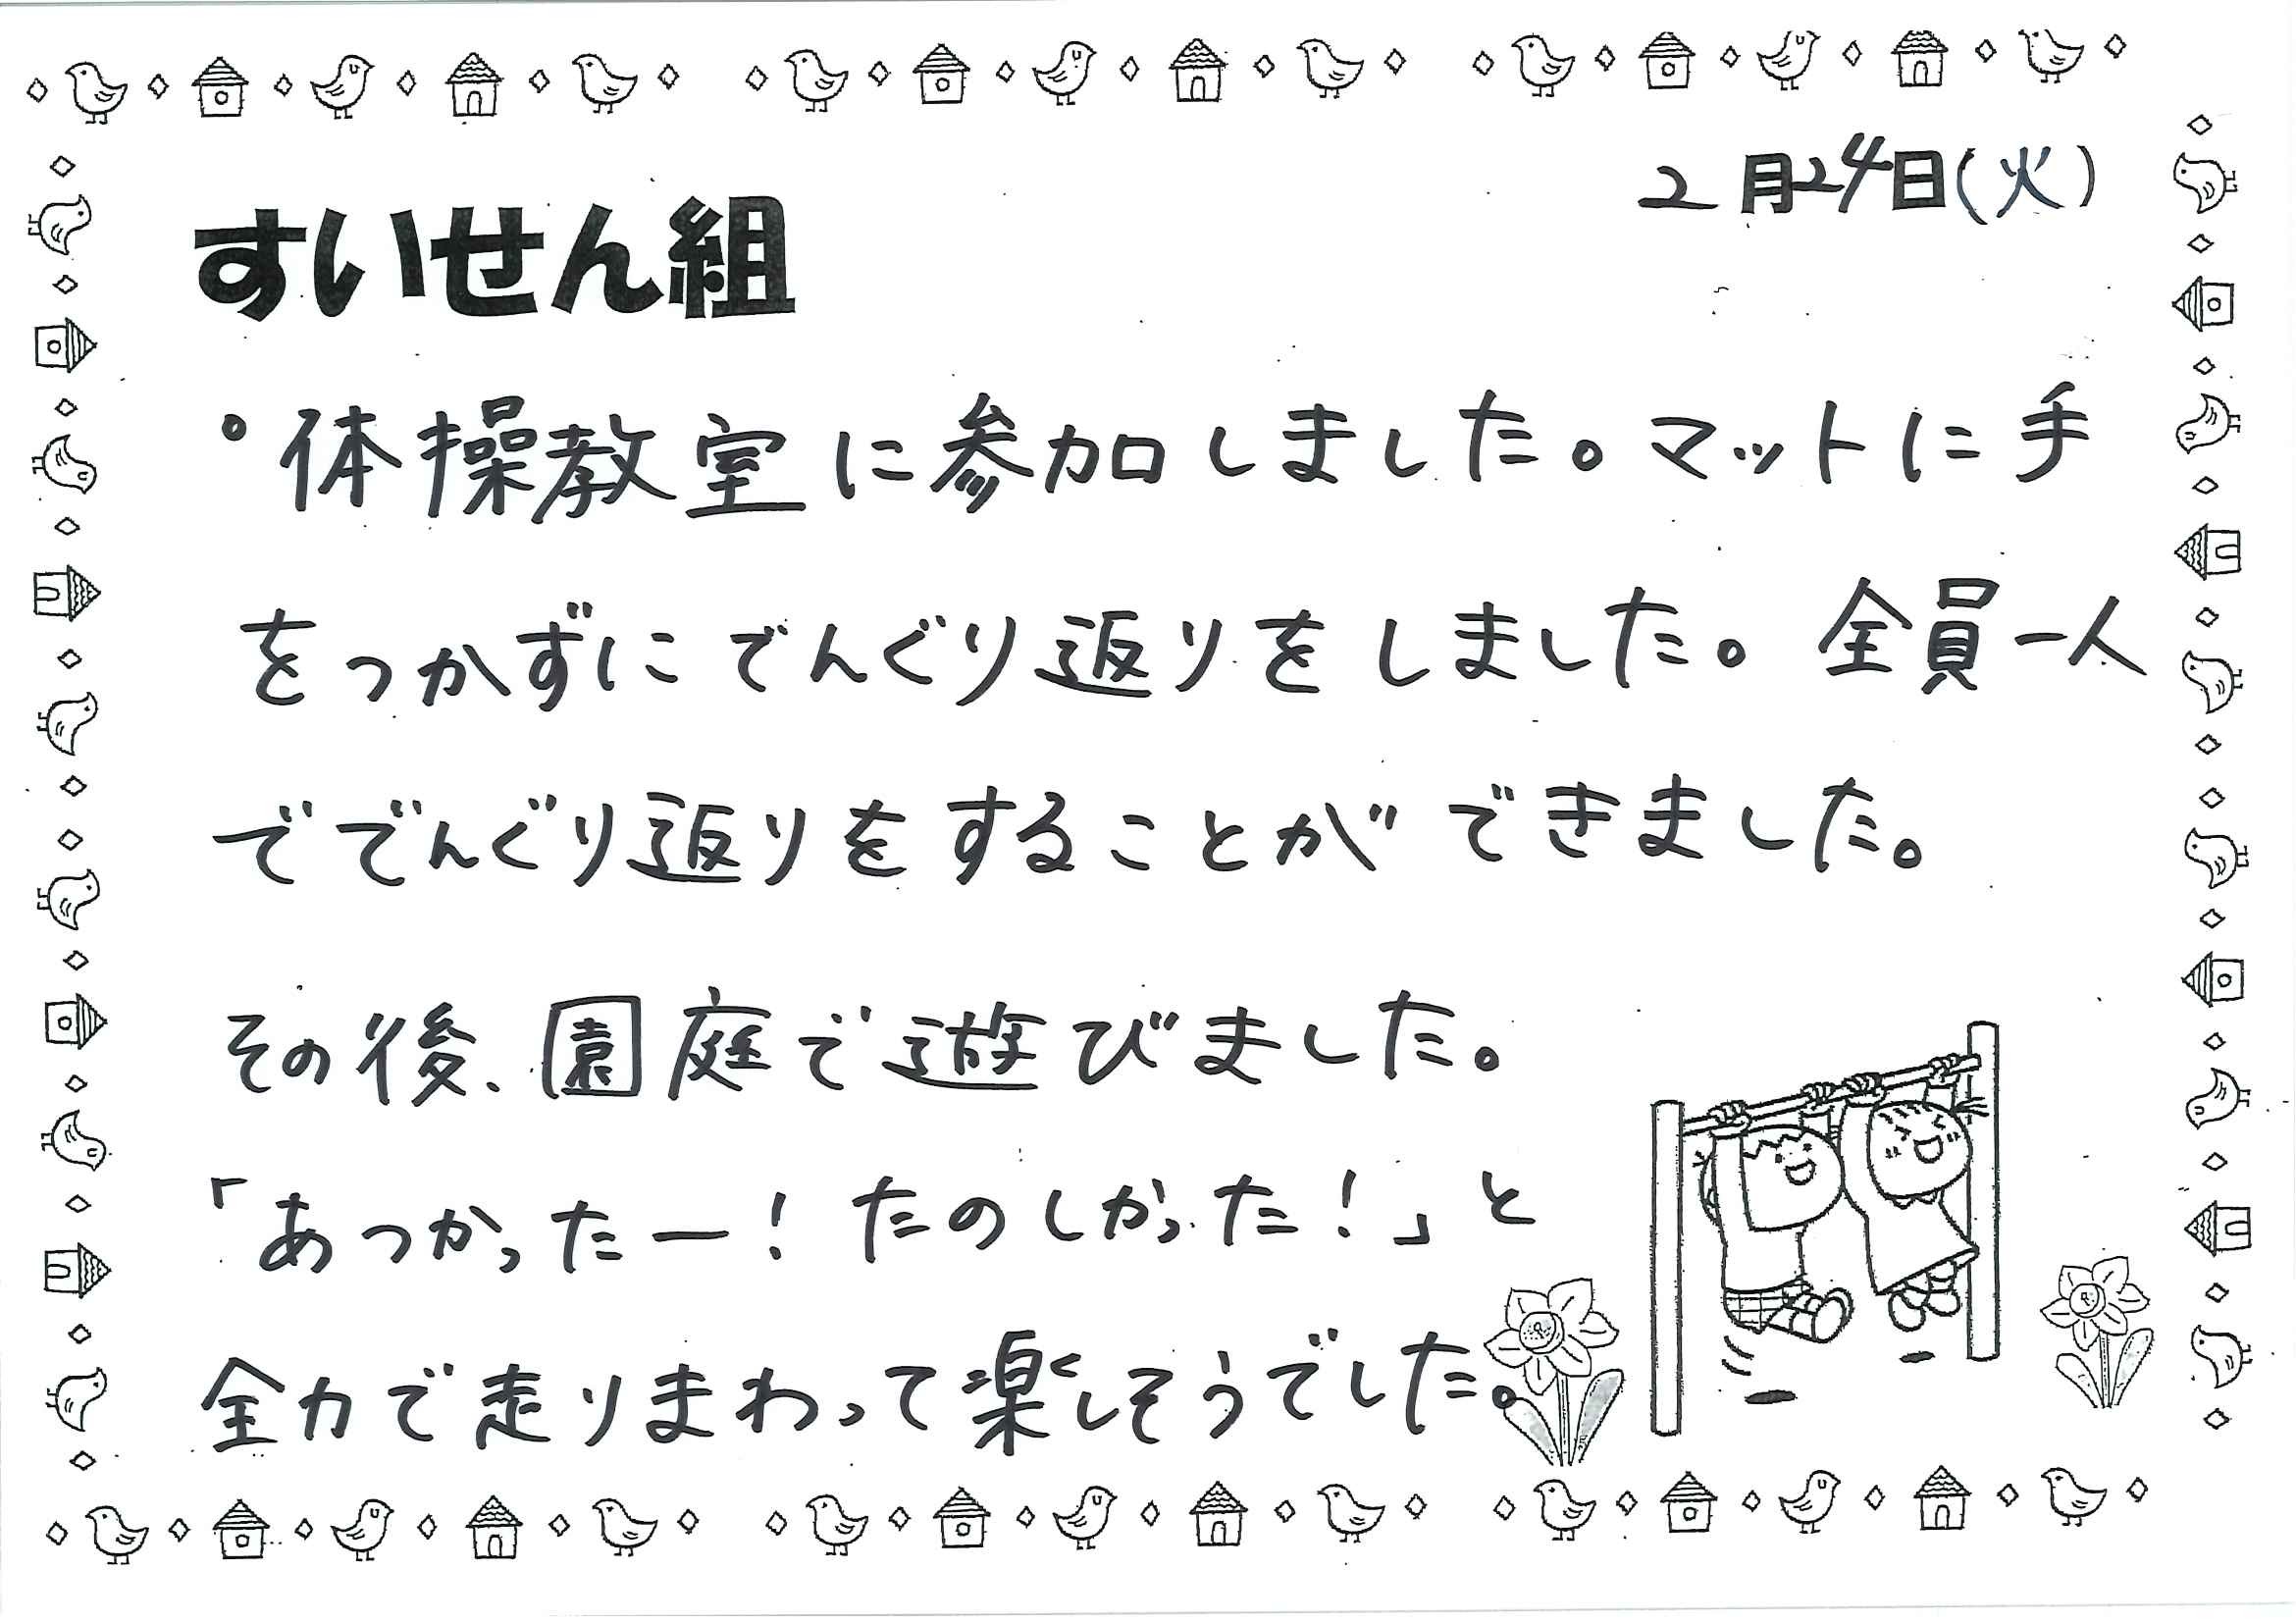 2月24日(火)
すいせん組
。体操教室に参加しました。マットに手
をつかずにでんぐり返りをしました。全員一人
ででんぐり返りをすることができました。
その後、園庭で遊びました。
「あつかったー!たのしかった!」と
全力で走りまわって楽しそうでした。